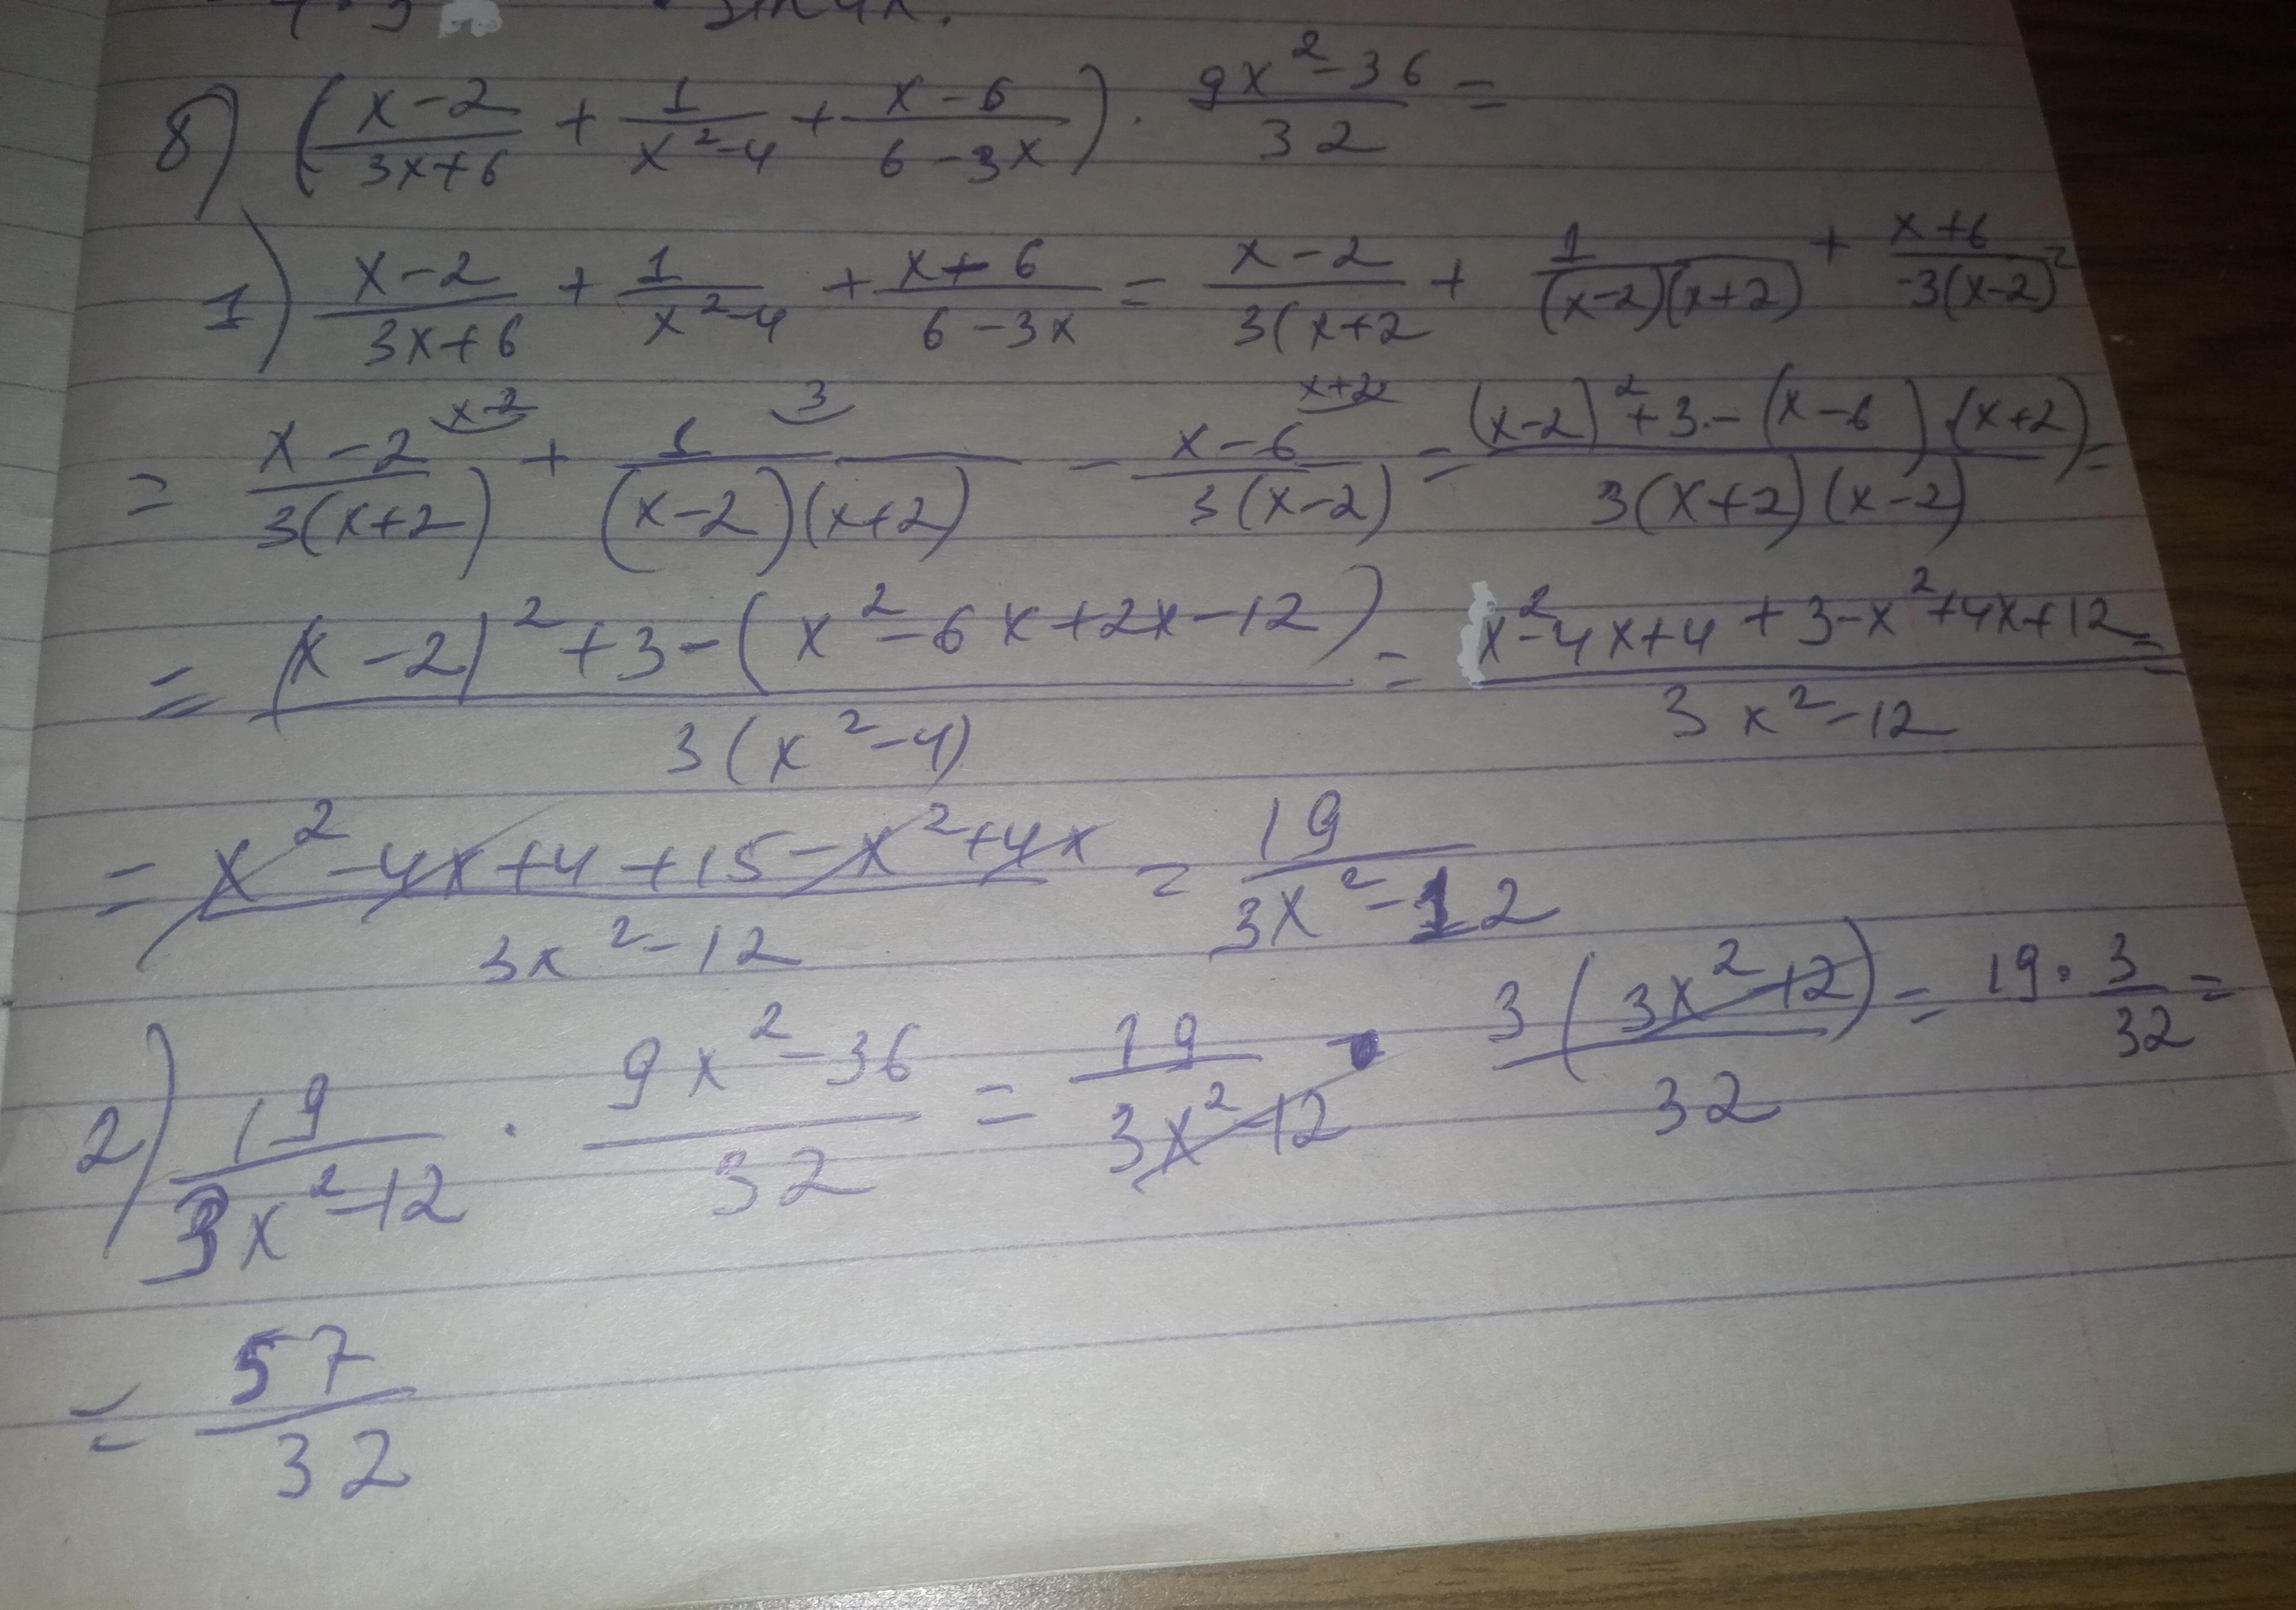 sin4x.
8) (x-2/3x+6 + 1/x²-4 + x-6/6-3x) · 9x²-36/32 =
1) x-2/3x+6 + 1/x²-4 + x+6/6-3x = x-2/3(x+2 + 1/(x-2)(x+2) + x+6/-3(x-2) =
= x-2/3(x+2) x-2 + 1/(x-2)(x+2) 3 - x-6/3(x-2) x+2 = (x-2)²+3-(x-6)·(x+2)/3(x+2)(x-2) =
= (x-2)²+3-(x²-6x+2x-12)/3(x²-4) = x²-4x+4+3-x²+4x+12/3x²-12 =
= x²-4x+4+15-x²+4x/3x²-12 = 19/3x²-12
2) 19/3x²-12 · 9x²-36/32 = 19/3x²-12 · 3(3x²-12)/32 = 19·3/32 =
= 57/32